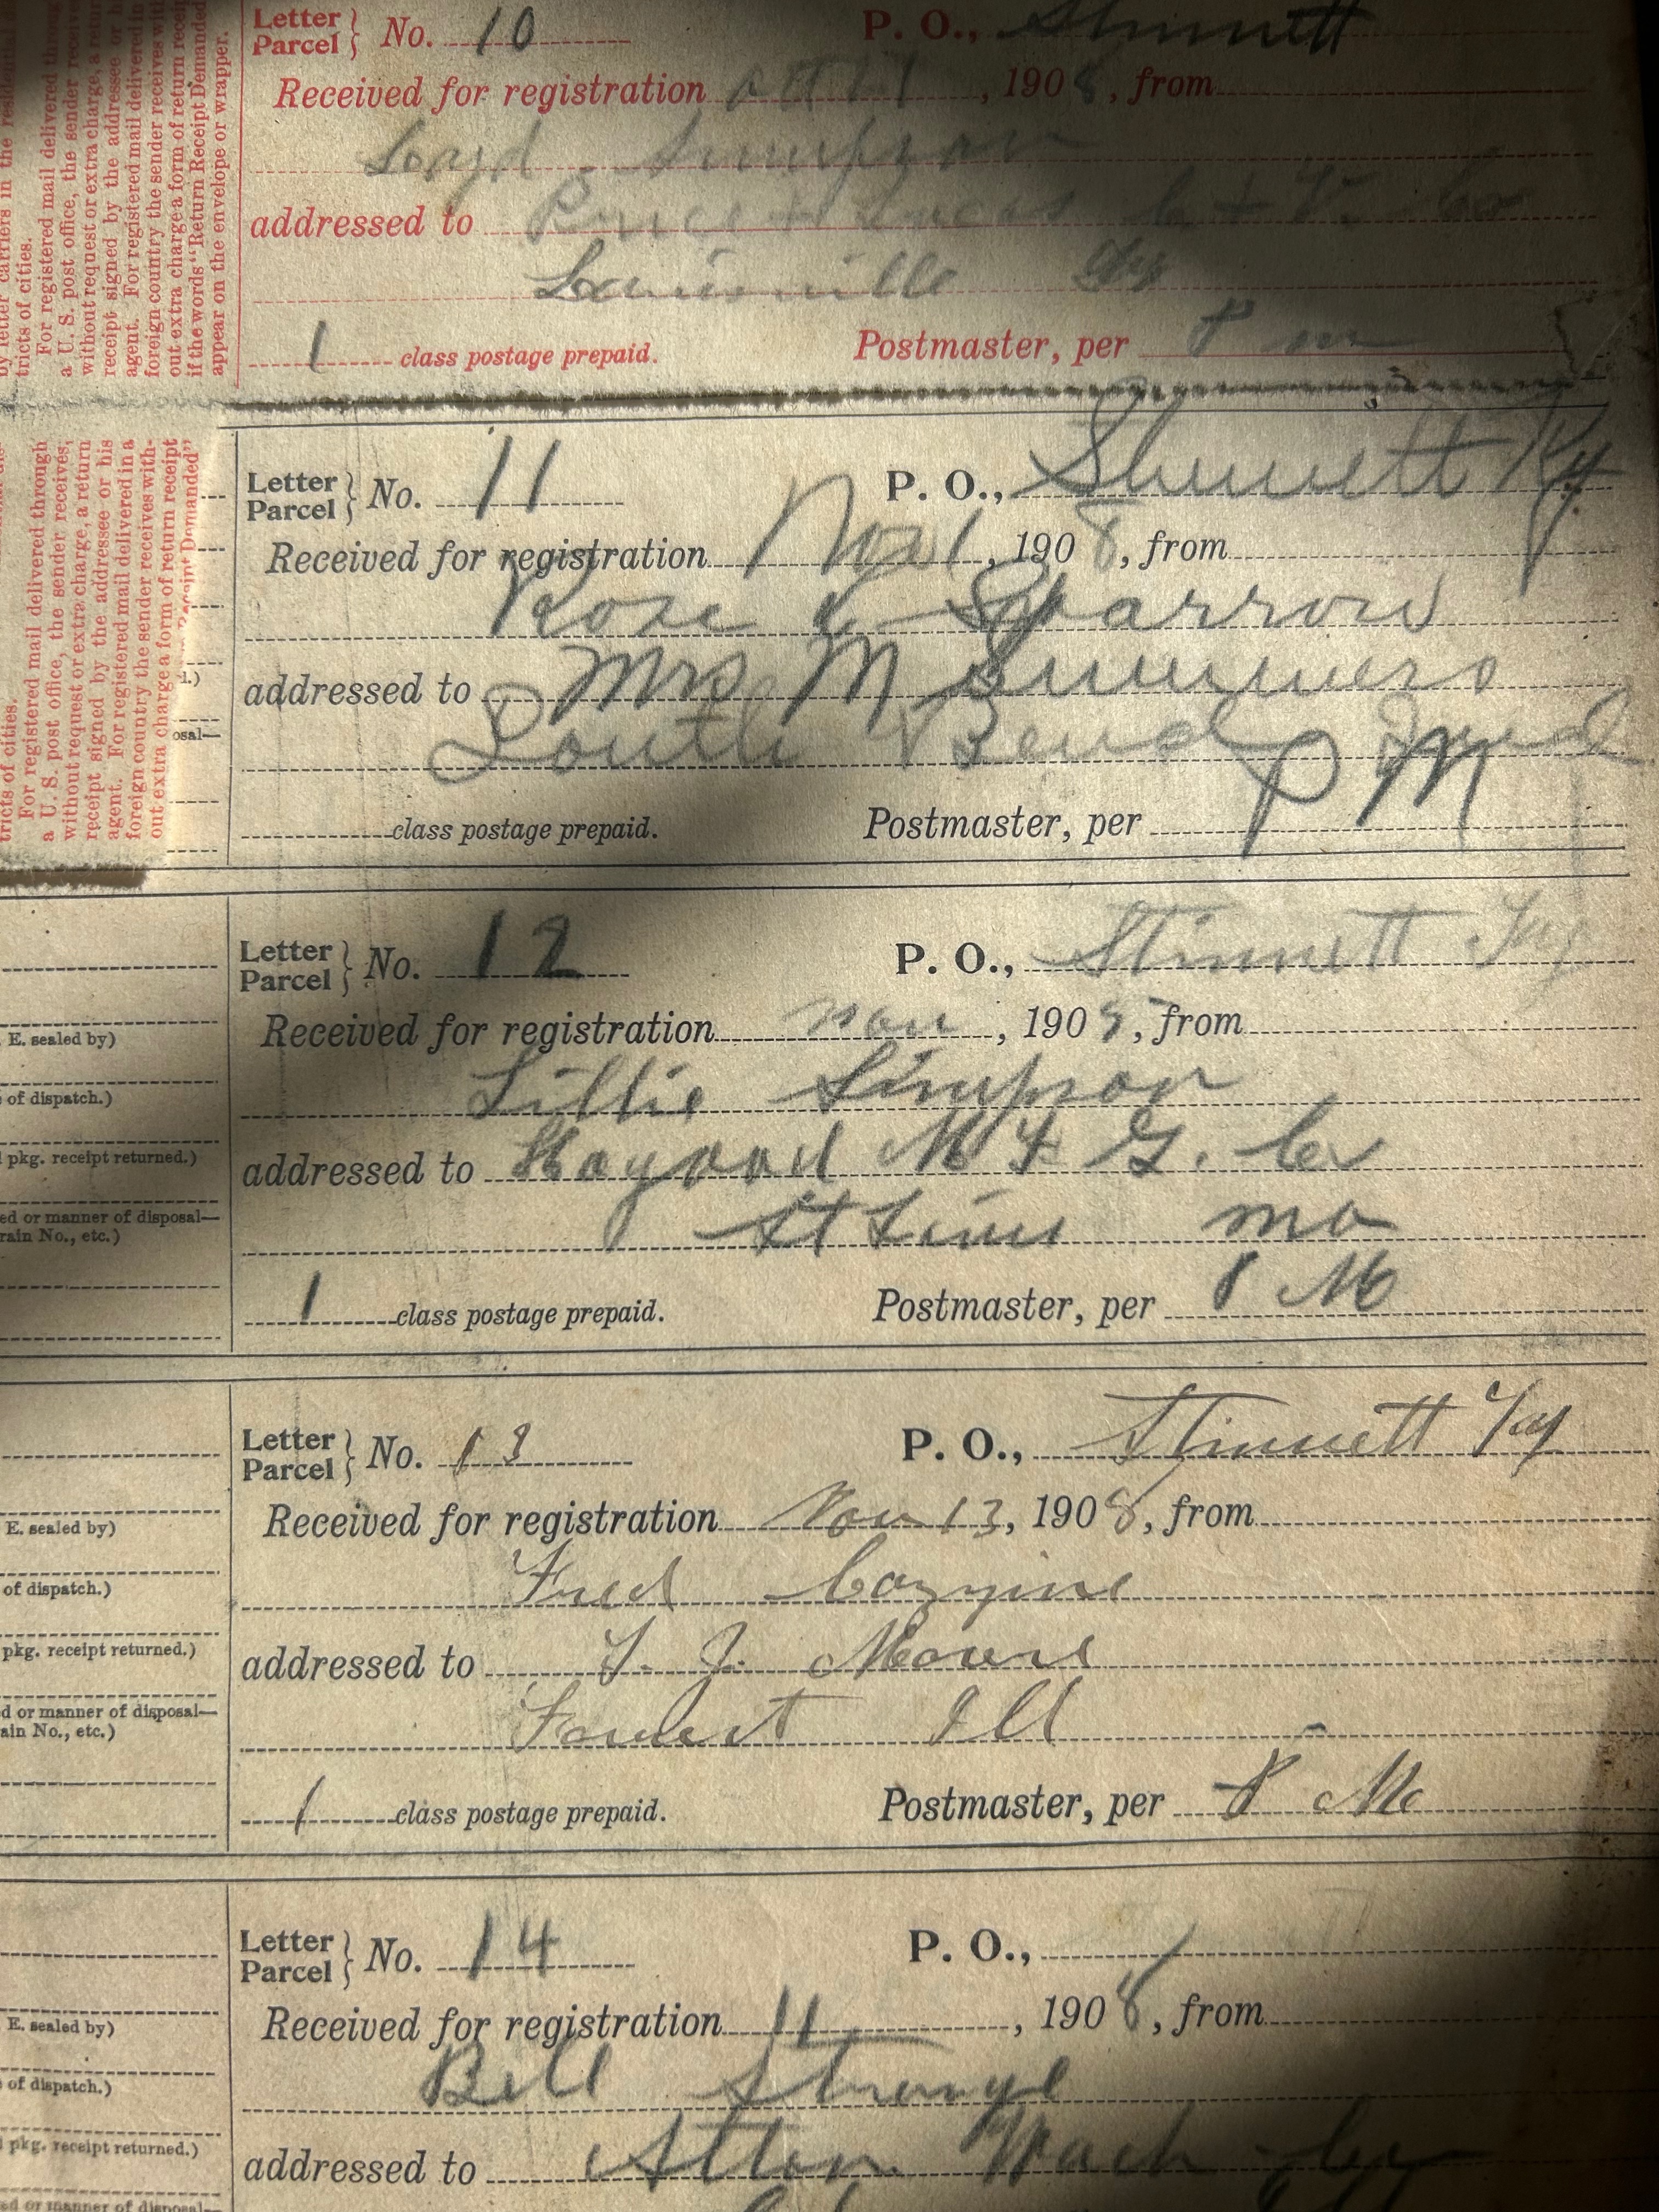 by letter carriers in the residential
tricts of cities.
For registered mail delivered through
a U. S. post office, the sender receives,
without request or extra charge, a return
receipt signed by the addressee or his
agent. For registered mail delivered in a
foreign country the sender receives with-
out extra charge a form of return receipt
if the words "Return Receipt Demanded"
appear on the envelope or wrapper.
Letter
Parcel } No. 10 P. O., Stinnett
Received for registration , 1908, from
Loyd Simpson
addressed to Co
Louisville Ky
1 class postage prepaid. Postmaster, per P m
tricts of cities.
For registered mail delivered through
a U. S. post office, the sender receives,
without request or extra charge, a return
receipt signed by the addressee or his
agent. For registered mail delivered in a
foreign country the sender receives with-
out extra charge a form of return receipt
Receipt Demanded"
Letter
Parcel } No. 11 P. O., Stinnett Ky
Received for registration Nov 1, 1908, from
Rose Sparrow
addressed to Mrs M Summers
South Bend Ind
class postage prepaid. Postmaster, per P M
Letter
Parcel } No. 12 P. O., Stinnett Ky
E. sealed by)
Received for registration Nov, 1908, from
of dispatch.)
Lillie Simpson
pkg. receipt returned.)
addressed to M F G. Co
ed or manner of disposal—
rain No., etc.)
St Louis Mo
1 class postage prepaid. Postmaster, per P M
Letter
Parcel } No. 13 P. O., Stinnett Ky
E. sealed by)
Received for registration Nov 13, 1908, from
of dispatch.)
Fred Cozzine
pkg. receipt returned.)
addressed to T. J. Moore
d or manner of disposal—
ain No., etc.)
Ill
1 class postage prepaid. Postmaster, per P M
Letter
Parcel } No. 14 P. O.,
E. sealed by)
Received for registration 11, 1908, from
of dispatch.)
Bell Strange
pkg. receipt returned.)
addressed to Alton Co
ed or manner of disposal—